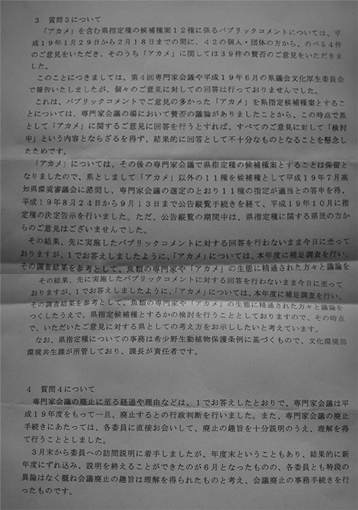 3 質問3について
「アカメ」を含む県指定種の候補種案12種に係るパブリックコメントについては、平
成19年1月29日から2月18日までの間に、42の個人・団体の方から、のべ54件
のご意見をいただき、そのうち「アカメ」に関しては39件の賛否のご意見をいただきまし
た。
このことにつきましては、第4回専門家会議や平成19年6月の県議会文化厚生委員会
で報告いたしましたが、個々のご意見に対しての回答は行っておりませんでした。
これは、パブリックコメントでご意見の多かった「アカメ」を県指定候補種とすること
については、専門家会議の場において賛否の議論がありましたことから、この時点で県
として「アカメ」に関するご意見に回答を行うとすれば、すべてのご意見に対して「検討
中」という内容とならざるを得ず、結果的に回答として不十分なものとなることを懸念し
たためです。
「アカメ」については、その後の専門家会議で県指定種の候補種とすることは保留と
なりましたので、県としまして「アカメ」以外の11種を候補種として平成19年7月高
知県環境審議会に諮問し、専門家会議の選定のとおり11種の指定が適当との答申を得、
平成19年8月24日から9月13日まで公告縦覧手続きを経て、平成19年10月に指
定種の決定告示を行いました。ただ、公告縦覧の期間中は、県指定種に関する県民の方か
らのご意見はございませんでした。
その結果、先に実施したパブリックコメントに対する回答を行わないまま今日に至って
おりますが、1でお答えしましたように、「アカメ」については、本年度に補足調査を行い、
その調査結果を参考として、魚類の専門家や「アカメ」の生態に精通された方々と議論を
その結果、先に実施したパブリックコメントに対する回答を行わないまま今日に至って
おりますが、1でお答えしましたように、「アカメ」については、本年度に補足調査を行い、
その調査結果を参考として、魚類の専門家や「アカメ」の生態に精通された方々と議論を
つくしたうえで、県指定候補種とするかの検討を行うこととしておりますので、その時点
で、いただいたご意見に対する県としての考え方をお示ししたいと考えています。
なお、県指定種についての事務は希少野生動植物保護条例に基づくもので、文化環境部
環境共生課が所管しており、課長が責任者です。
4 質問4について
専門家会議の廃止に至る経過や理由などは、1でお答えしたとおりで、専門家会議は平
成19年度をもって一旦、廃止するとの行政判断を行いました。また、専門家会議の廃止
手続きにあたっては、各委員に直接お会いして、廃止の趣旨を十分説明のうえ、理解を得
て行うこととしました。
3月末から委員への訪問説明に着手しましたが、年度末ということもあり、結果的に新
年度にずれ込み、説明を終えることができたのが6月となったものの、各委員とも特段の
異論はなく概ね会議廃止の趣旨は理解を得られたものと考え、会議廃止の事務手続きを行
ったものです。